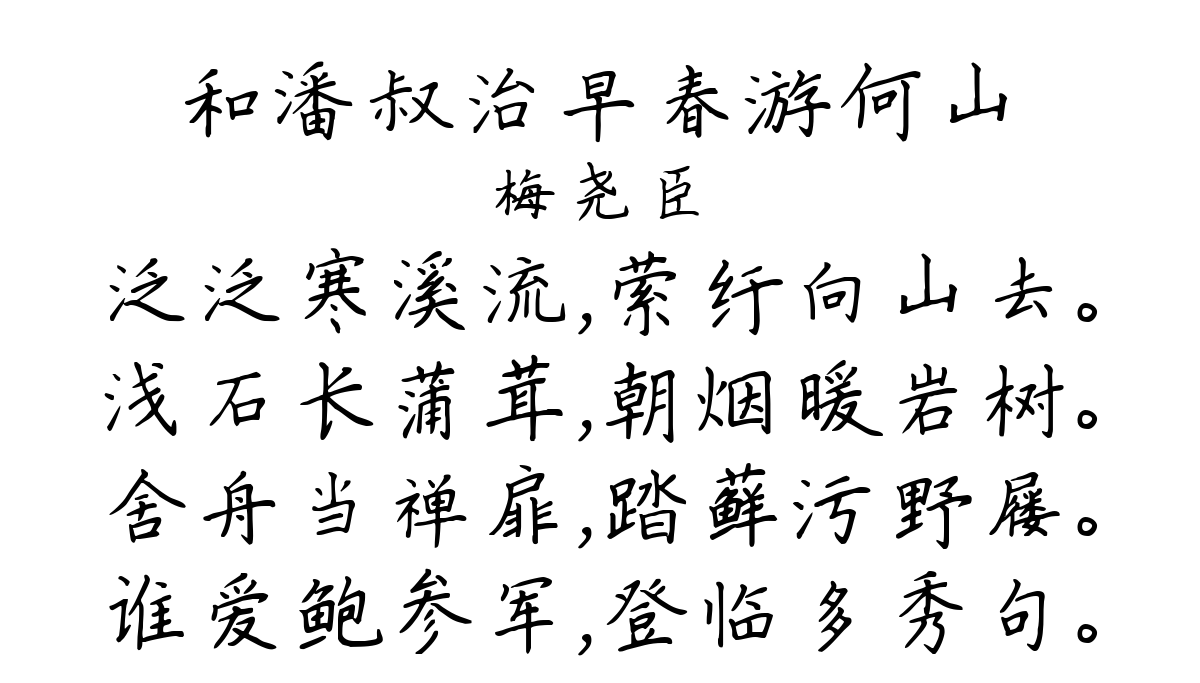 和潘叔治早春游何山
梅尧臣
泛泛寒溪流,萦纡向山去。
浅石长蒲茸,朝烟暖岩树。
舍舟当禅扉,踏藓污野屦。
谁爱鲍参军,登临多秀句。